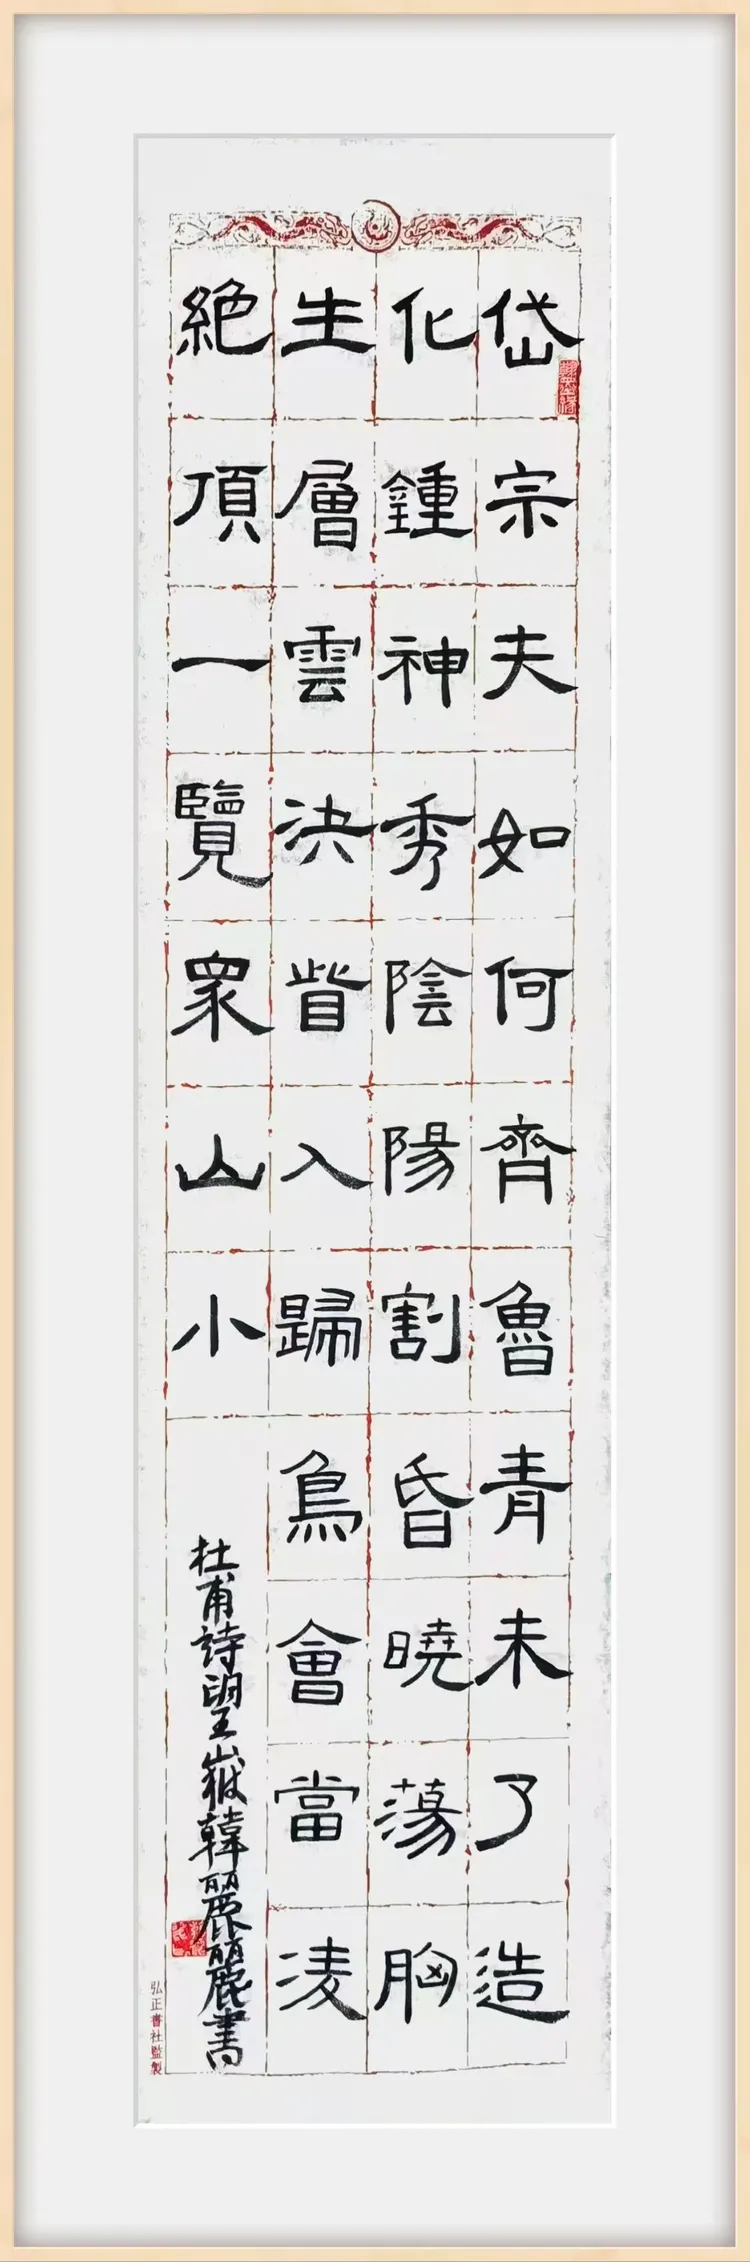 岱宗夫如何齊魯青未了造
化鍾神秀陰陽割昏曉蕩胸
生層雲決眥入歸鳥會當凌
絶頂一覽眾山小
杜甫詩望嶽韓麗麗書
翰墨緣
弘正書社監製